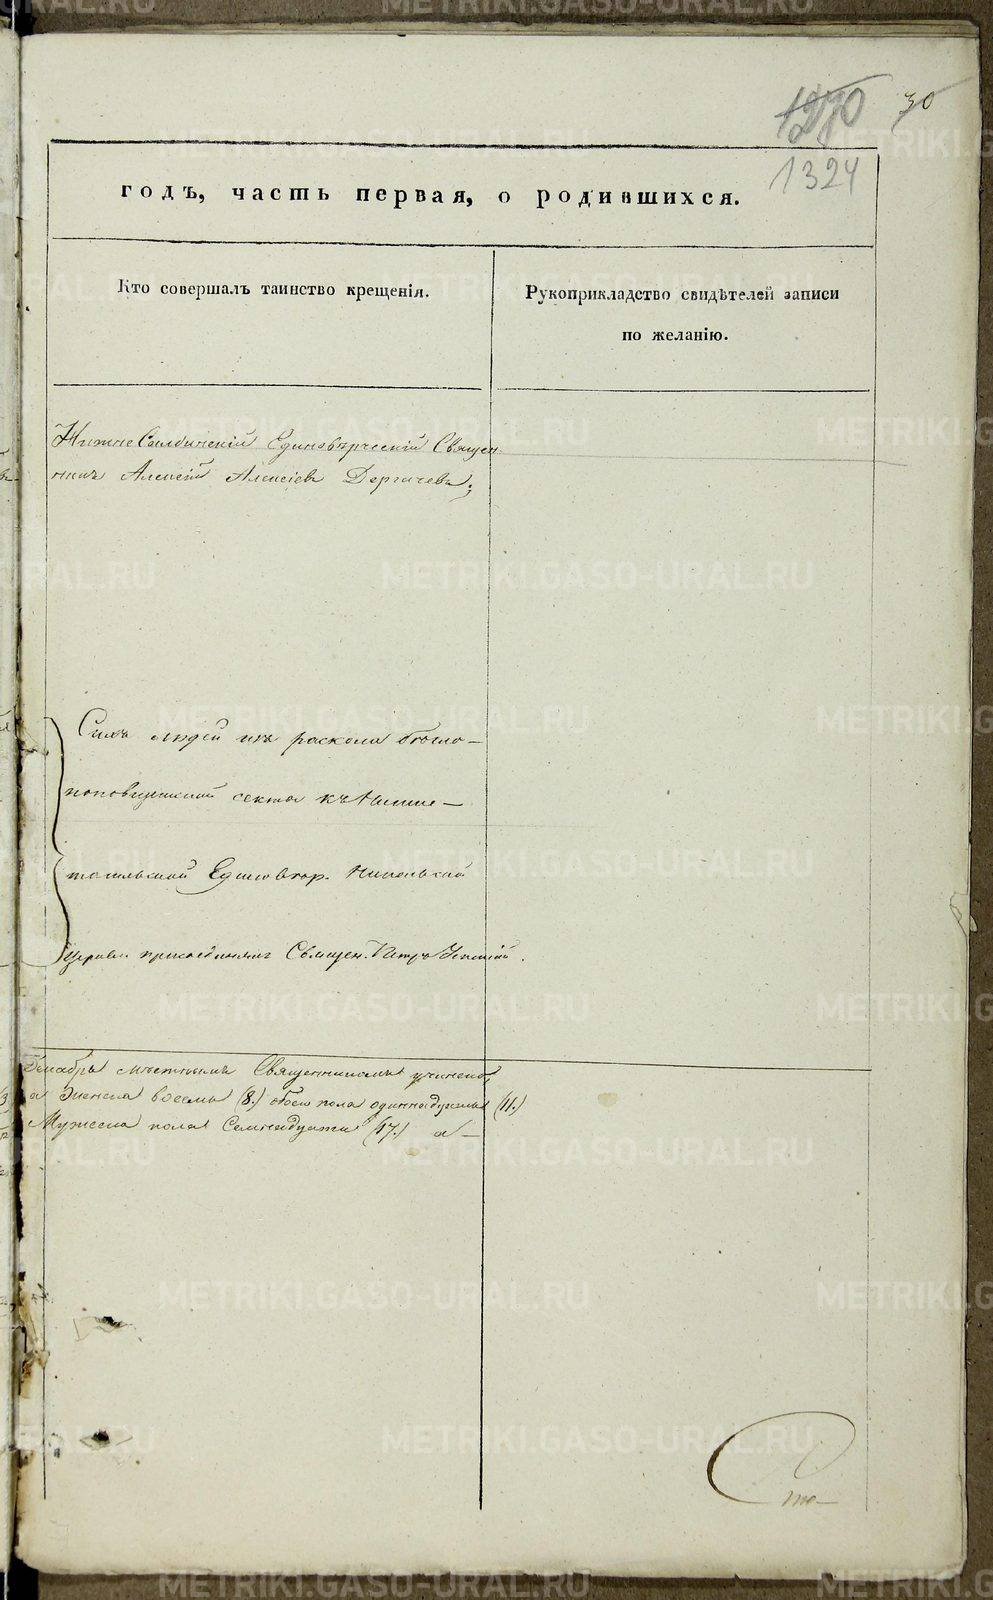 1270 30
1324
годъ, часть первая, о родившихся.
Кто совершалъ таинство крещенія.
Рукоприкладство свидѣтелей записи
по желанію.
НижнеСалдинскій Единовѣрческій Священ
никъ Алексѣй Алексіевъ Дергачевъ;
Сихъ людей изъ раскола бѣгло-
поповщинской секты къ Нижне-
тагильской Единовѣр. Никольской
Церкви присоединялъ Священ. Петръ
Декабрь мѣстнымъ Священникомъ
а Женска восемь (8.) обоего пола одиннадцать (11.)
Мужеска пола Семнадцать (17.) а-
METRIKI.GASO-URAL.RU